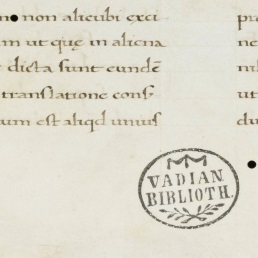 non alicubi exci
m ut quę in aliena
dicta sunt eundē
translatione conſ
um est aliqd unius
pr
ne
ni
ut
du
VADIAN
BIBLIOTH.